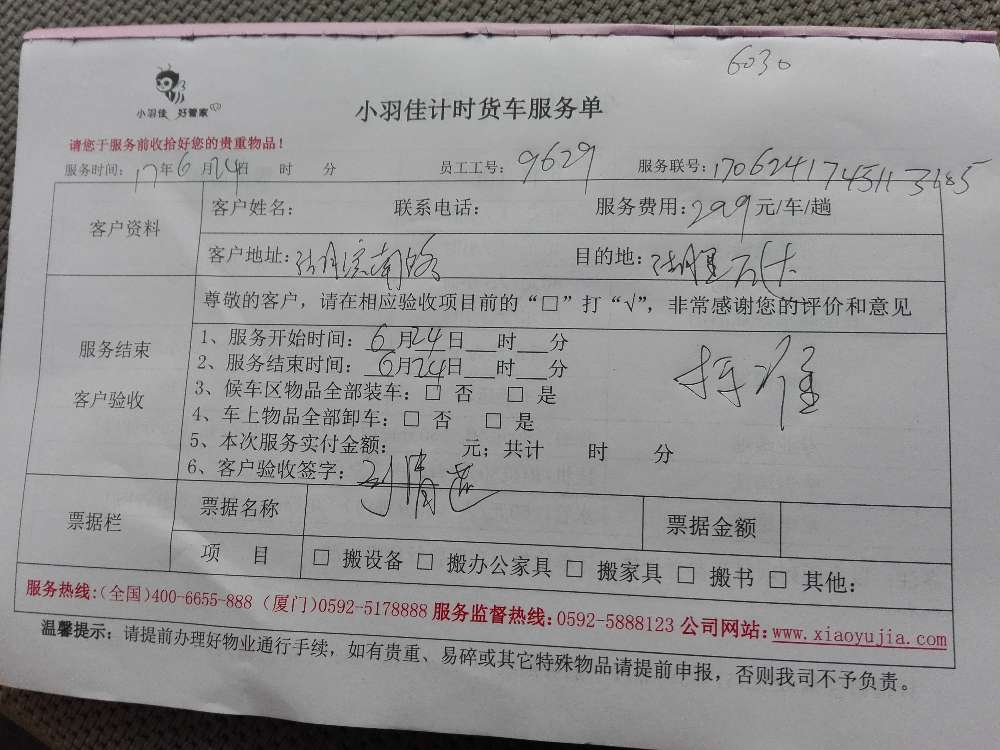 6030
小羽佳 好管家
小羽佳计时货车服务单
请您于服务前收拾好您的贵重物品！
服务时间：17年6月24日 时 分 员工工号：9629 服务联号：170624174511 3685
客户资料
客户姓名： 联系电话： 服务费用：299元/车/趟
客户地址： 南路 目的地：
尊敬的客户，请在相应验收项目前的“□”打“√”，非常感谢您的评价和意见
服务结束
客户验收
1、服务开始时间：6月24日__时__分
2、服务结束时间：6月24日__时__分
3、候车区物品全部装车：□ 否 □ 是
4、车上物品全部卸车：□ 否 □ 是
5、本次服务实付金额： 元；共计 时 分
6、客户验收签字：
票据栏
票据名称 票据金额
项 目 □ 搬设备 □ 搬办公家具 □ 搬家具 □ 搬书 □ 其他：
服务热线：（全国）400-6655-888（厦门）0592-5178888 服务监督热线：0592-5888123 公司网站：www.xiaoyujia.com
温馨提示：请提前办理好物业通行手续，如有贵重、易碎或其它特殊物品请提前申报，否则我司不予负责。